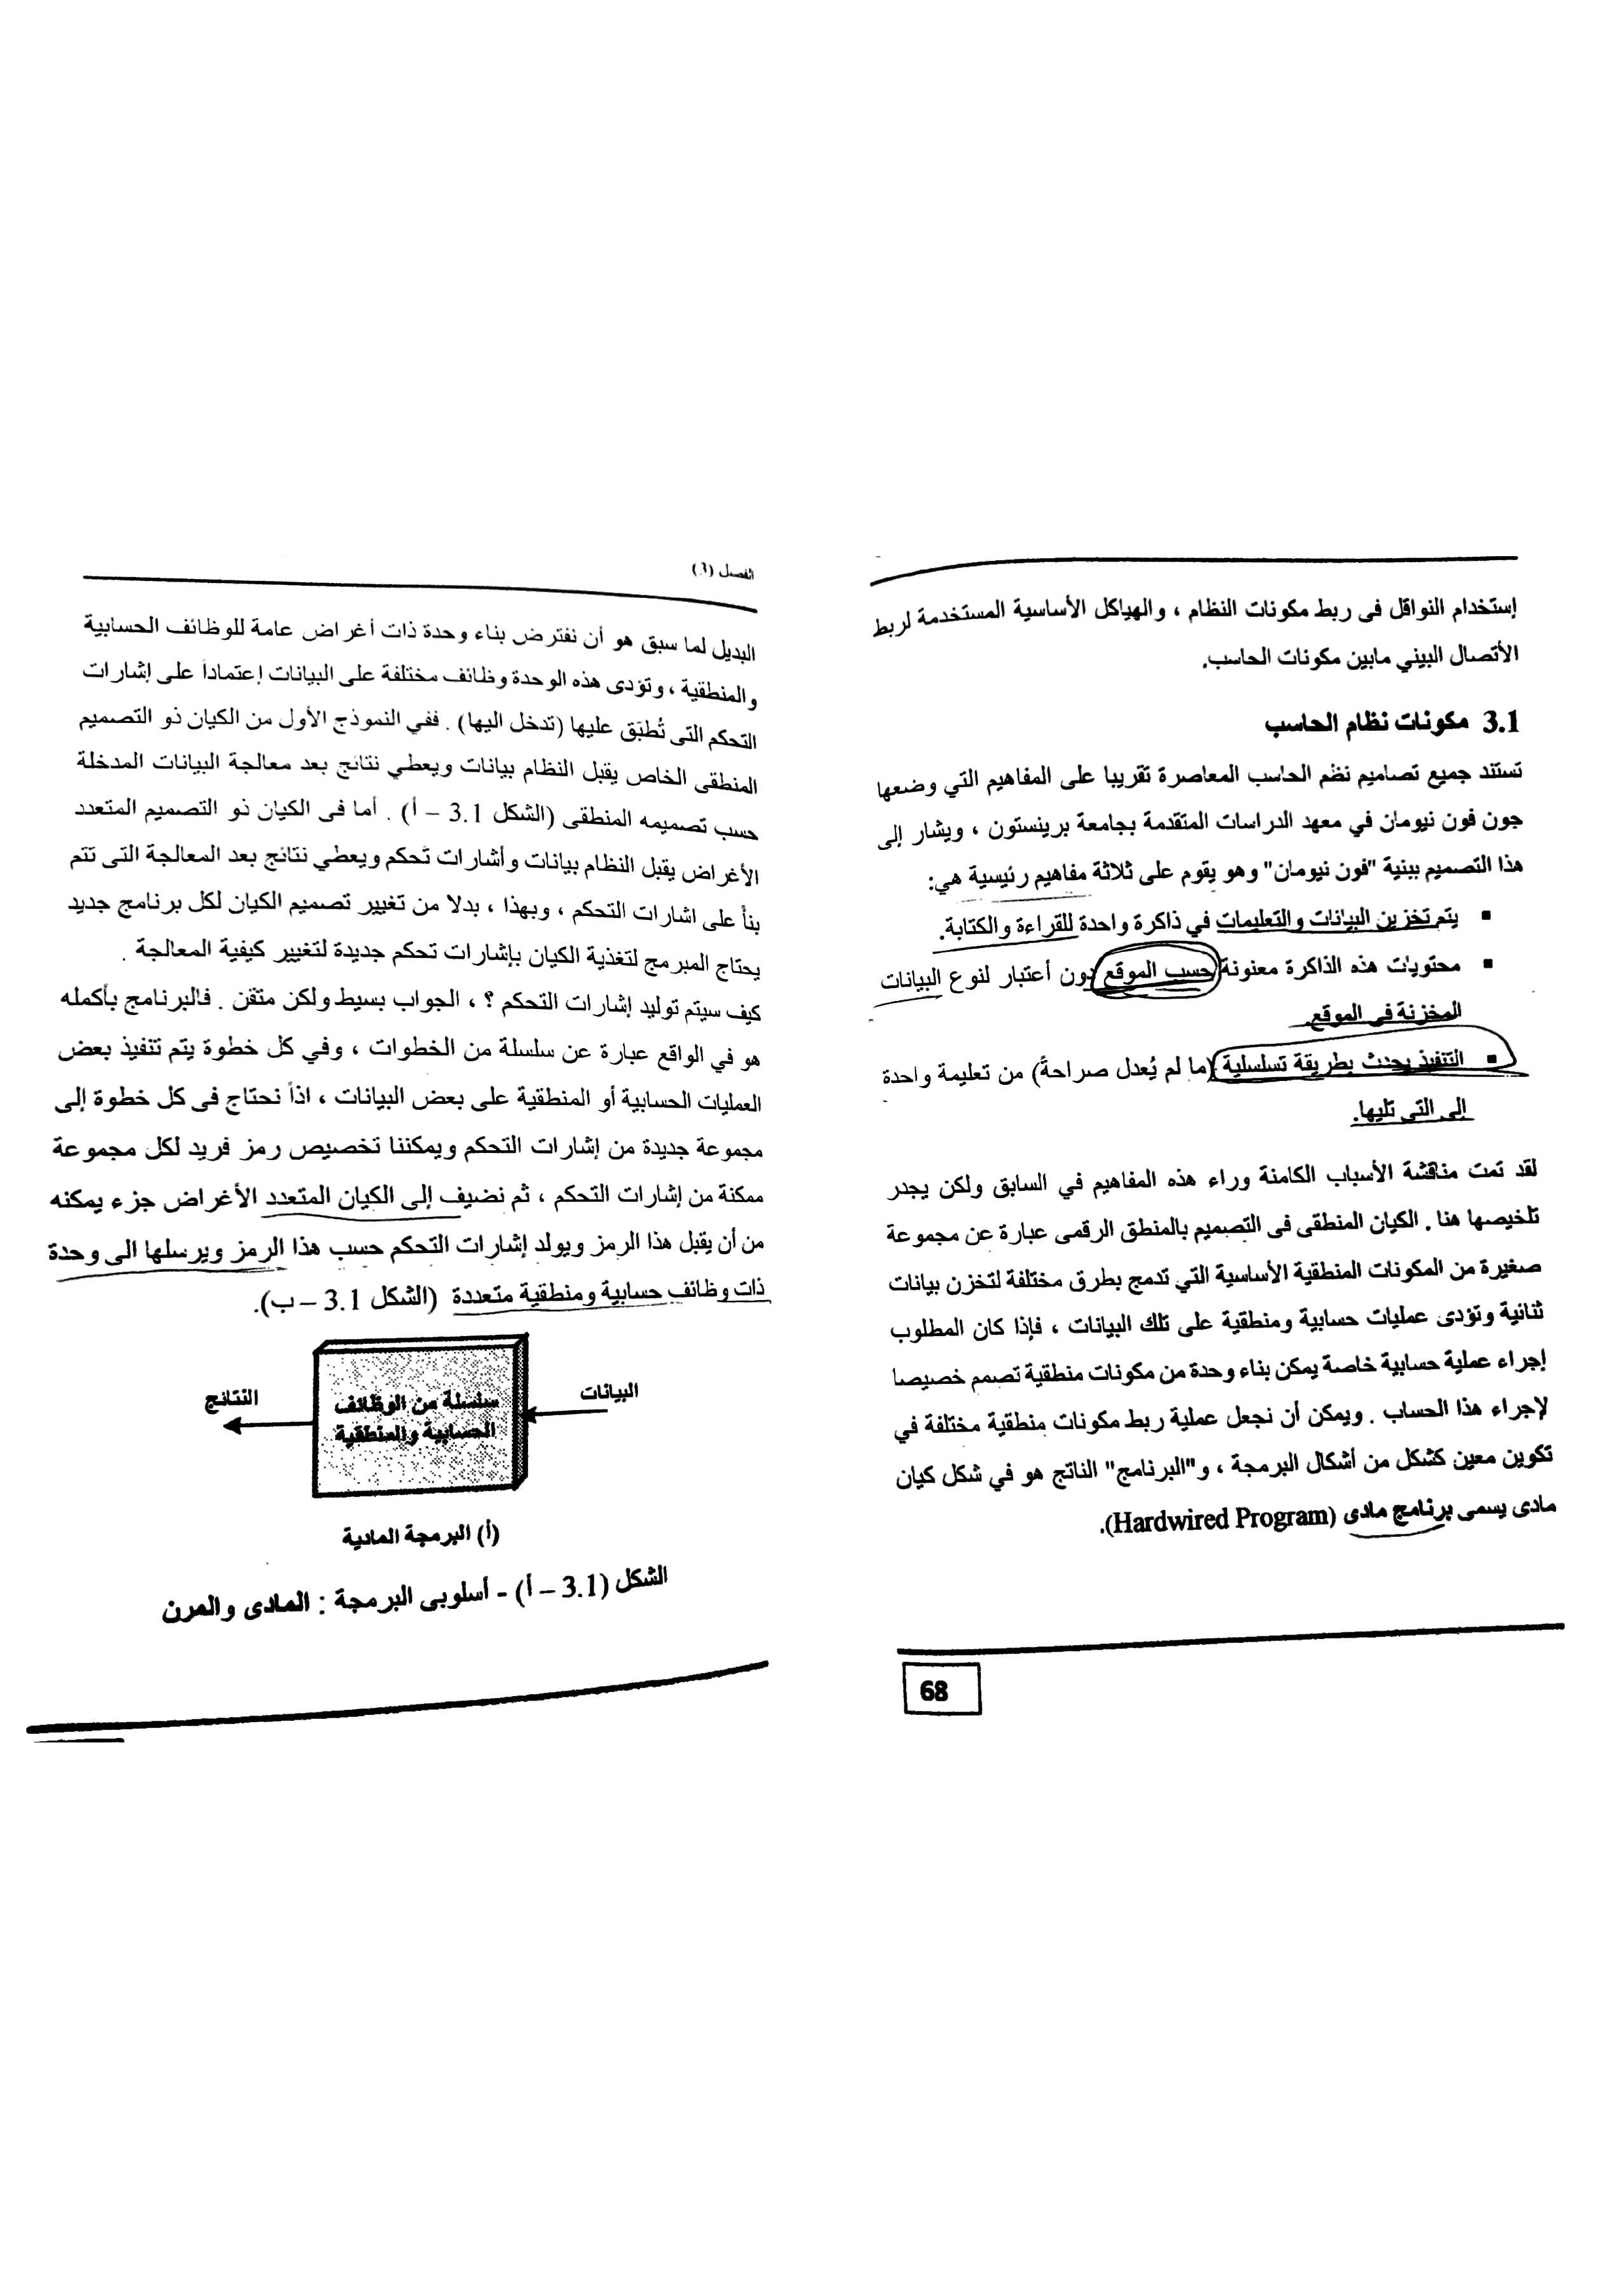 إستخدام النواقل فى ربط مكونات النظام ، والهياكل الأساسية المستخدمة لربط
الأتصال البيني مابين مكونات الحاسب.
3.1 مكونات نظام الحاسب
تستند جميع تصاميم نظم الحاسب المعاصرة تقريبا على المفاهيم التي وضعها
جون فون نيومان في معهد الدراسات المتقدمة بجامعة برينستون ، ويشار إلى
هذا التصميم ببنية "فون نيومان" وهو يقوم على ثلاثة مفاهيم رئيسية هي:
▪ يتم تخزين البيانات والتعليمات في ذاكرة واحدة للقراءة والكتابة.
▪ محتويات هذه الذاكرة معنونة حسب الموقع دون أعتبار لنوع البيانات
المخزنة فى الموقع.
▪ التنفيذ يحدث بطريقة تسلسلية (ما لم يُعدل صراحةً) من تعليمة واحدة
إلى التى تليها.
لقد تمت مناقشة الأسباب الكامنة وراء هذه المفاهيم في السابق ولكن يجدر
تلخيصها هنا . الكيان المنطقى فى التصميم بالمنطق الرقمى عبارة عن مجموعة
صغيرة من المكونات المنطقية الأساسية التي تدمج بطرق مختلفة لتخزن بيانات
ثنائية وتؤدى عمليات حسابية ومنطقية على تلك البيانات ، فإذا كان المطلوب
إجراء عملية حسابية خاصة يمكن بناء وحدة من مكونات منطقية تصمم خصيصا
لإجراء هذا الحساب . ويمكن أن نجعل عملية ربط مكونات منطقية مختلفة في
تكوين معين كشكل من أشكال البرمجة ، و"البرنامج" الناتج هو في شكل كيان
مادى يسمى برنامج مادى (Hardwired Program).
68
الفصل (3)
البديل لما سبق هو أن نفترض بناء وحدة ذات أغراض عامة للوظائف الحسابية
والمنطقية ، وتؤدى هذه الوحدة وظائف مختلفة على البيانات إعتماداً على إشارات
التحكم التى تُطبَق عليها (تدخل اليها) . ففي النموذج الأول من الكيان ذو التصميم
المنطقى الخاص يقبل النظام بيانات ويعطي نتائج بعد معالجة البيانات المدخلة
حسب تصميمه المنطقى (الشكل 3.1 – أ) . أما فى الكيان ذو التصميم المتعدد
الأغراض يقبل النظام بيانات وأشارات تحكم ويعطي نتائج بعد المعالجة التى تتم
بنأ على اشارات التحكم ، وبهذا ، بدلا من تغيير تصميم الكيان لكل برنامج جديد
يحتاج المبرمج لتغذية الكيان بإشارات تحكم جديدة لتغيير كيفية المعالجة .
كيف سيتم توليد إشارات التحكم ؟ ، الجواب بسيط ولكن متقن . فالبرنامج بأكمله
هو في الواقع عبارة عن سلسلة من الخطوات ، وفي كل خطوة يتم تنفيذ بعض
العمليات الحسابية أو المنطقية على بعض البيانات ، اذاً نحتاج فى كل خطوة إلى
مجموعة جديدة من إشارات التحكم ويمكننا تخصيص رمز فريد لكل مجموعة
ممكنة من إشارات التحكم ، ثم نضيف إلى الكيان المتعدد الأغراض جزء يمكنه
من أن يقبل هذا الرمز ويولد إشارات التحكم حسب هذا الرمز ويرسلها الى وحدة
ذات وظائف حسابية ومنطقية متعددة (الشكل 3.1 – ب).
البيانات
سلسلة من الوظائف
الحسابية والمنطقية
النتائج
(أ) البرمجة المادية
الشكل (3.1 – أ) - أسلوبى البرمجة : المادى والمرن